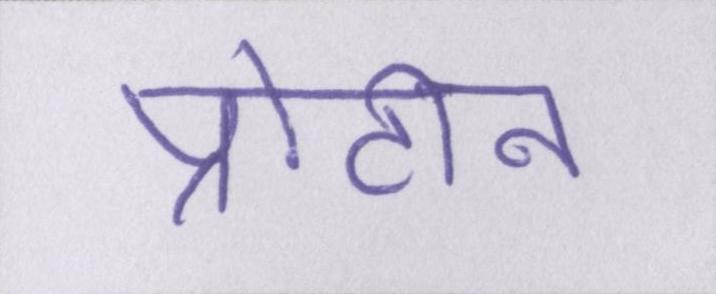 प्रोटीन